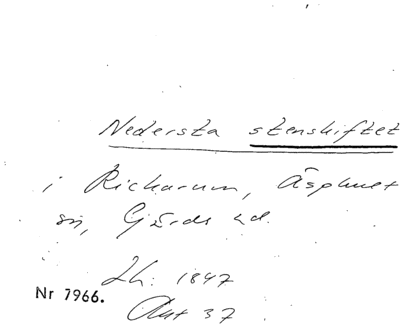 Nedersta stenskiftet
i Rickarum, Äsphult
sn, Gärds hd.
Lh: 1847
Nr 7966.
Akt 37